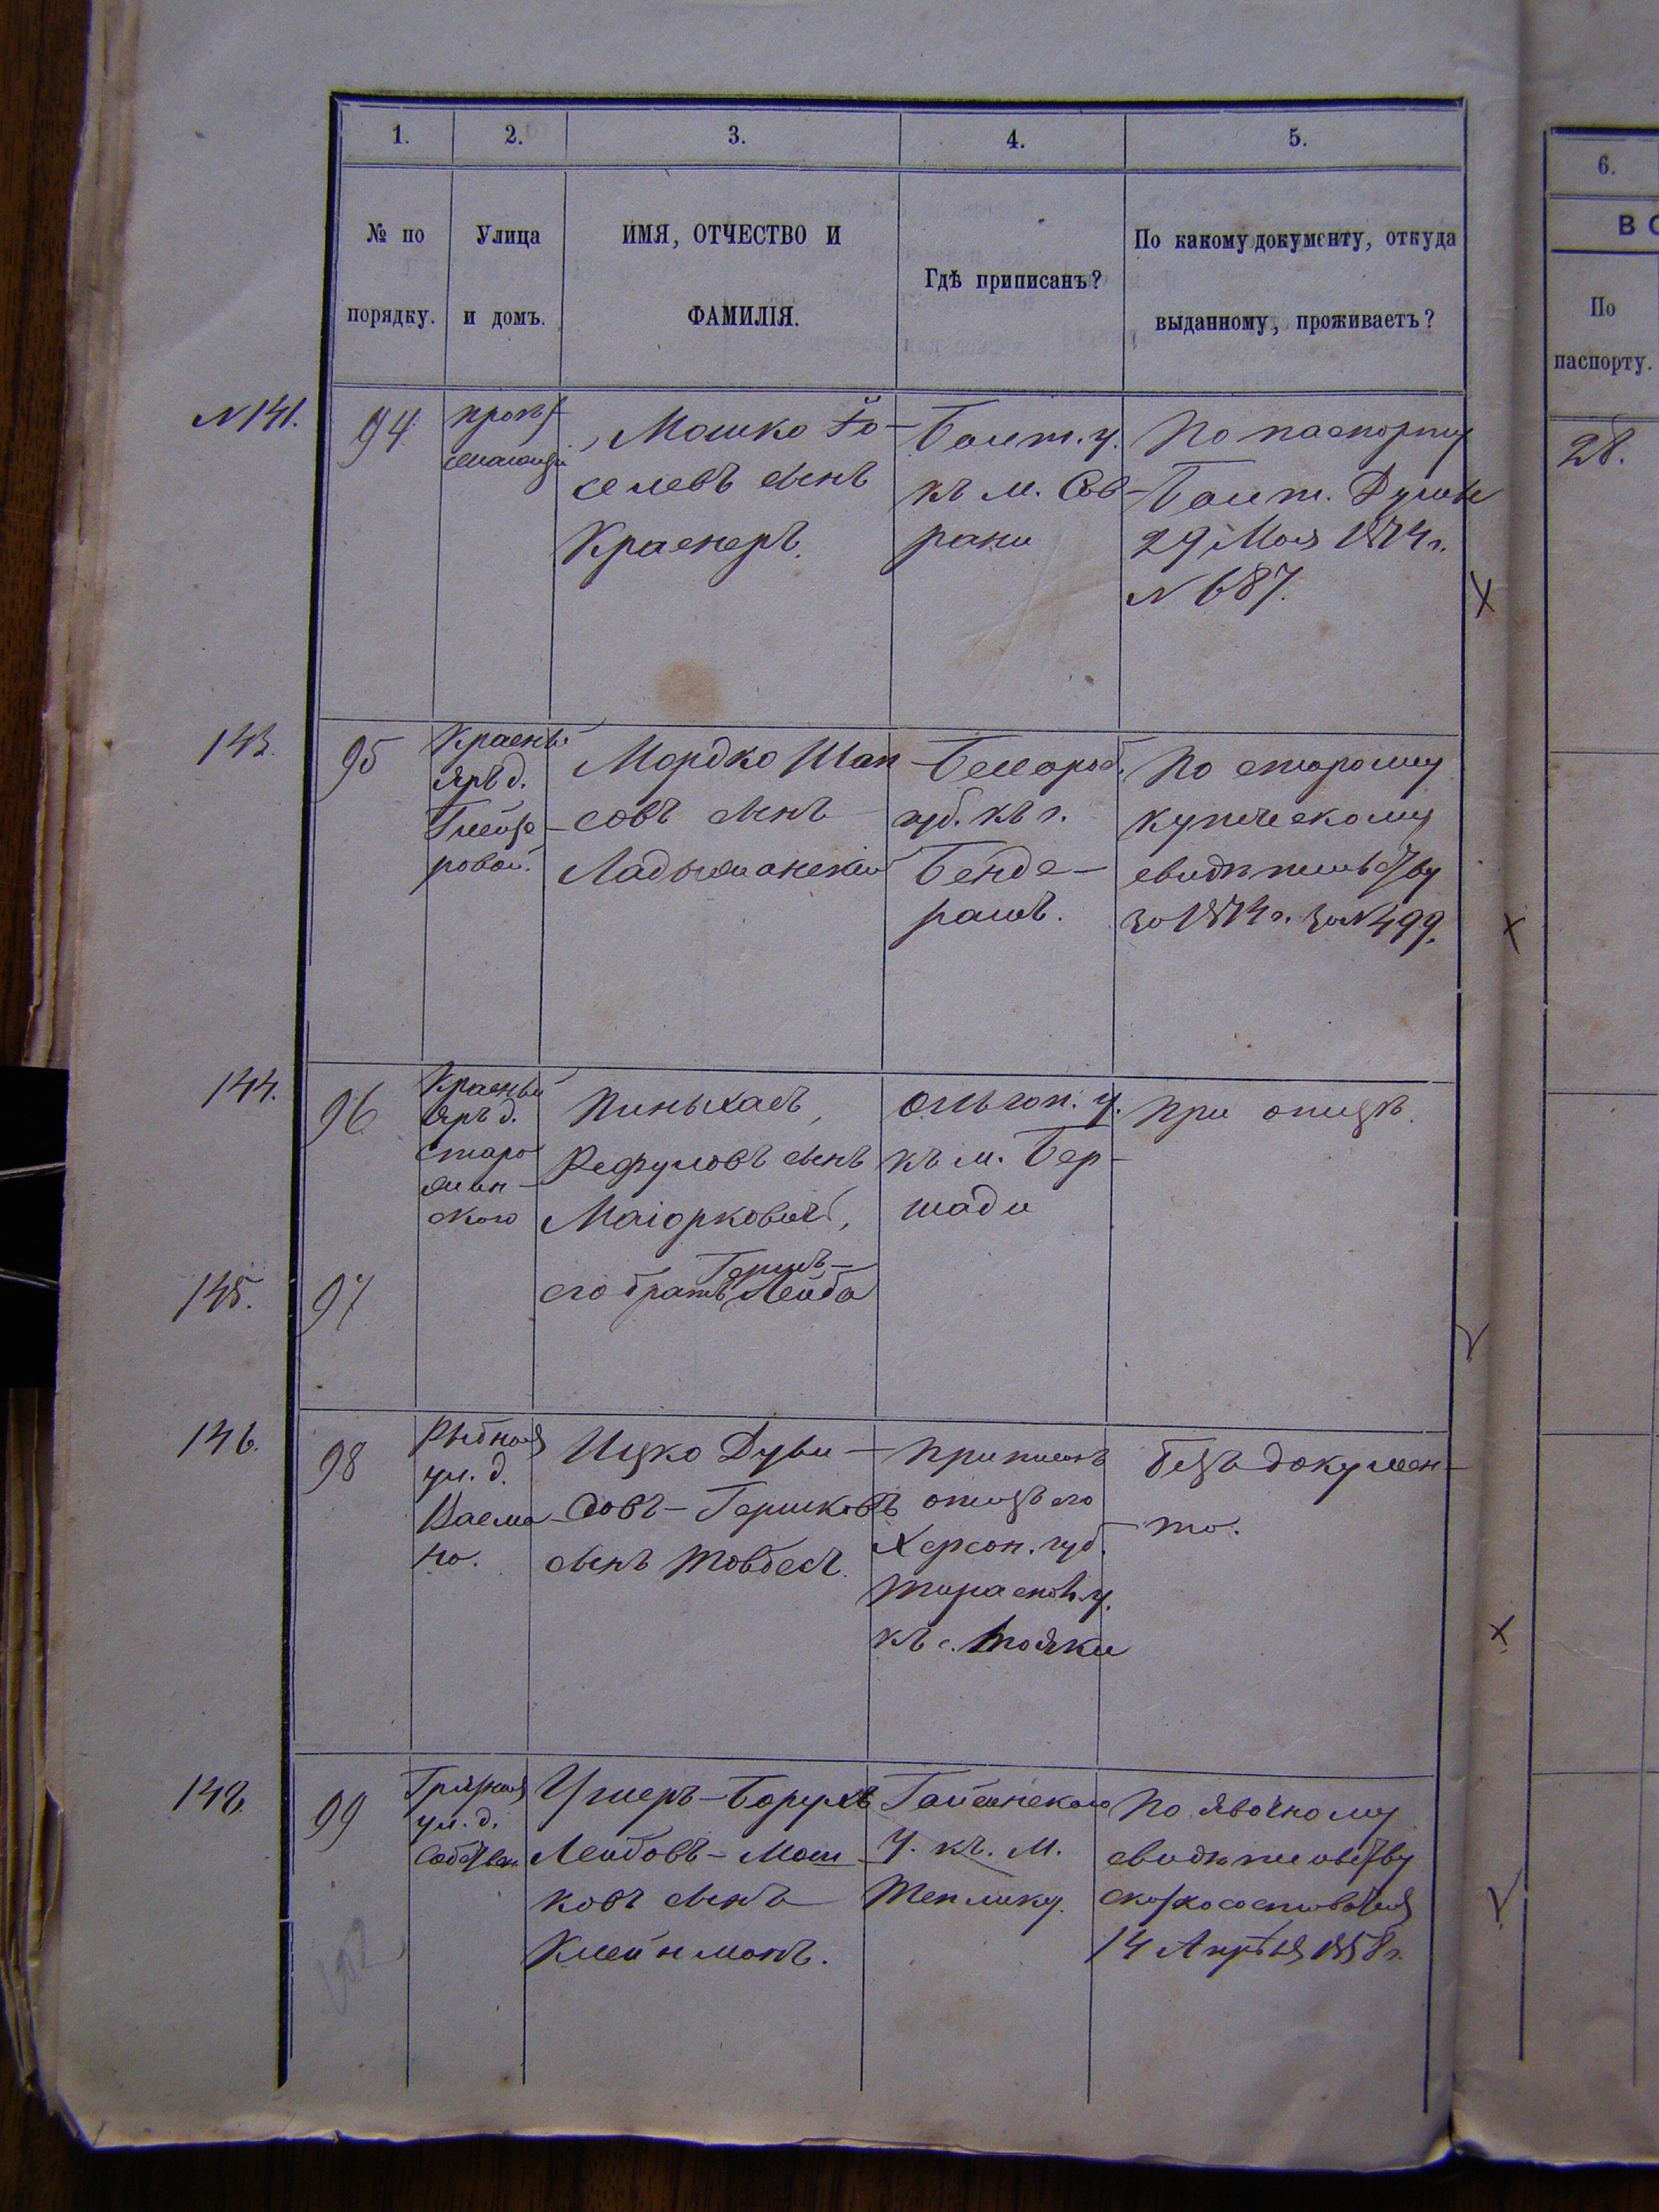 1. 2. 3. 4. 5.
6.
№ по порядку.
Улица и домъ.
ИМЯ, ОТЧЕСТВО И
ФАМИЛІЯ.
Гдѣ приписанъ?
По какому документу, откуда
выданному, проживаетъ?
ВО
По
паспорту.
N 141.
94
Мошко Іо-
селевъ сынъ
Краснеръ.
Балт. у.
къ м. Сав-
рани
По паспорту
Балт. Думы
29 Мая 1874 г.
N 687.
28.
143.
95
Красный
Яръ д.
Глейзе-
ровой.
Мордко Шап
совъ сынъ
Ладыжанскій
Бессараб.
губ. къ г.
Бенде-
рамъ.
По старому
купческому
свидѣтельству
за 1874 г. за N 499.
144.
96
Красный
Яръ д.
Старо
мин-
ского
Пиньхасъ,
Рефуловъ сынъ
Маіорковичъ,
Ольгоп. у.
къ м. Бер-
шади
при отцѣ.
145.
97
Гершъ-
его братъ Лейба
146.
98
Рыбная
ул. д.
Ицко Дуви-
довъ-Гершковъ
сынъ Товбесъ.
Приписанъ
отецъ его
Херсон. губ.
Тираспол. у.
къ с. Маяки
безъ докумен-
та.
148.
99
Грязная
ул. д.
Собствен.
Ушеръ-Борухъ
Лейбовъ-Мош
ковъ сынъ
Клейнманъ.
Гайсинского
у. къ. м.
Теплику.
По явочному
свидѣтельству
14 Апрѣля 1858 г.